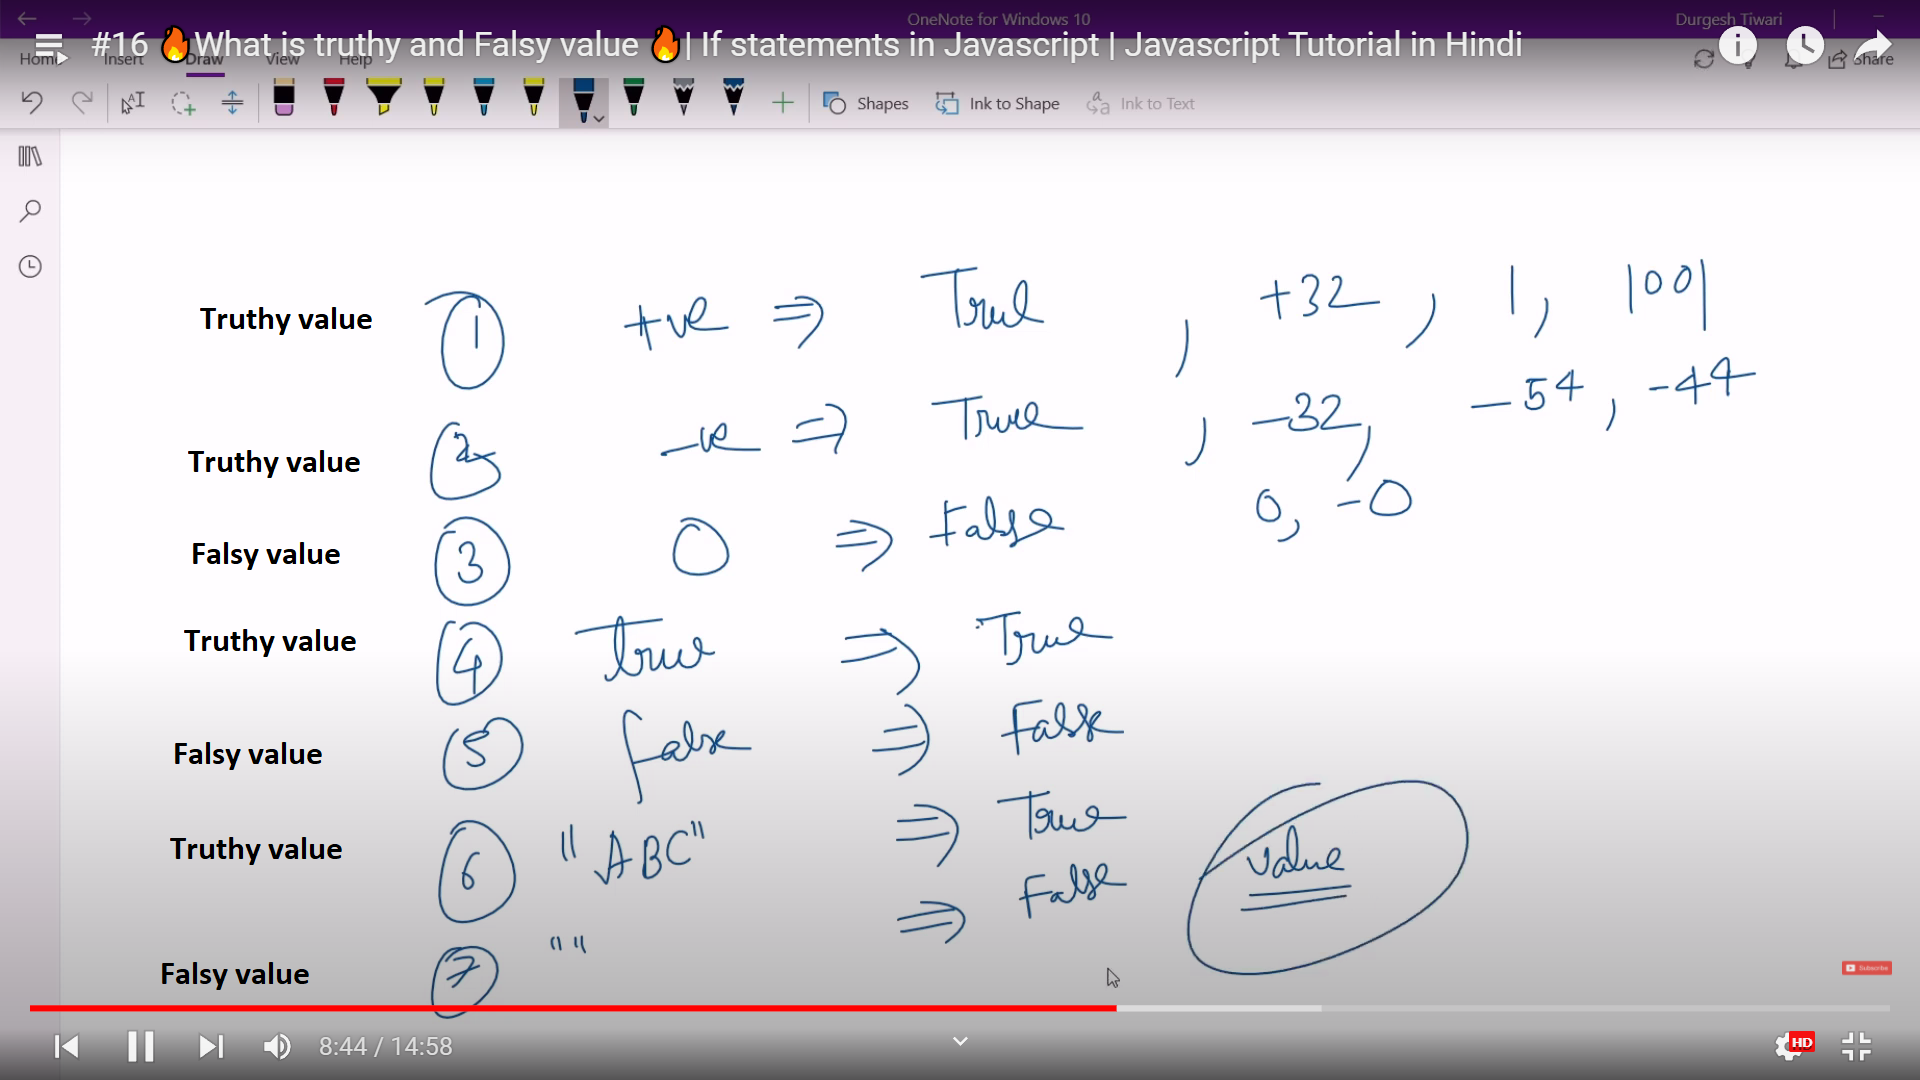 OneNote for Windows 10
Durgesh Tiwari
#16 🔥What is truthy and Falsy value 🔥| If statements in Javascript | Javascript Tutorial in Hindi
Home Insert Draw View Help Share
Shapes Ink to Shape Ink to Text
Truthy value 1 +ve ⇒ True , +32 , 1 , 1001
Truthy value 2 -ve ⇒ True , -32, -54 , -44
Falsy value 3 0 ⇒ False 0, -0
Truthy value 4 true ⇒ True
Falsy value 5 false ⇒ False
Truthy value 6 "ABC" ⇒ True
value
Falsy value 7 "" ⇒ False
Subscribe
8:44 / 14:58
HD